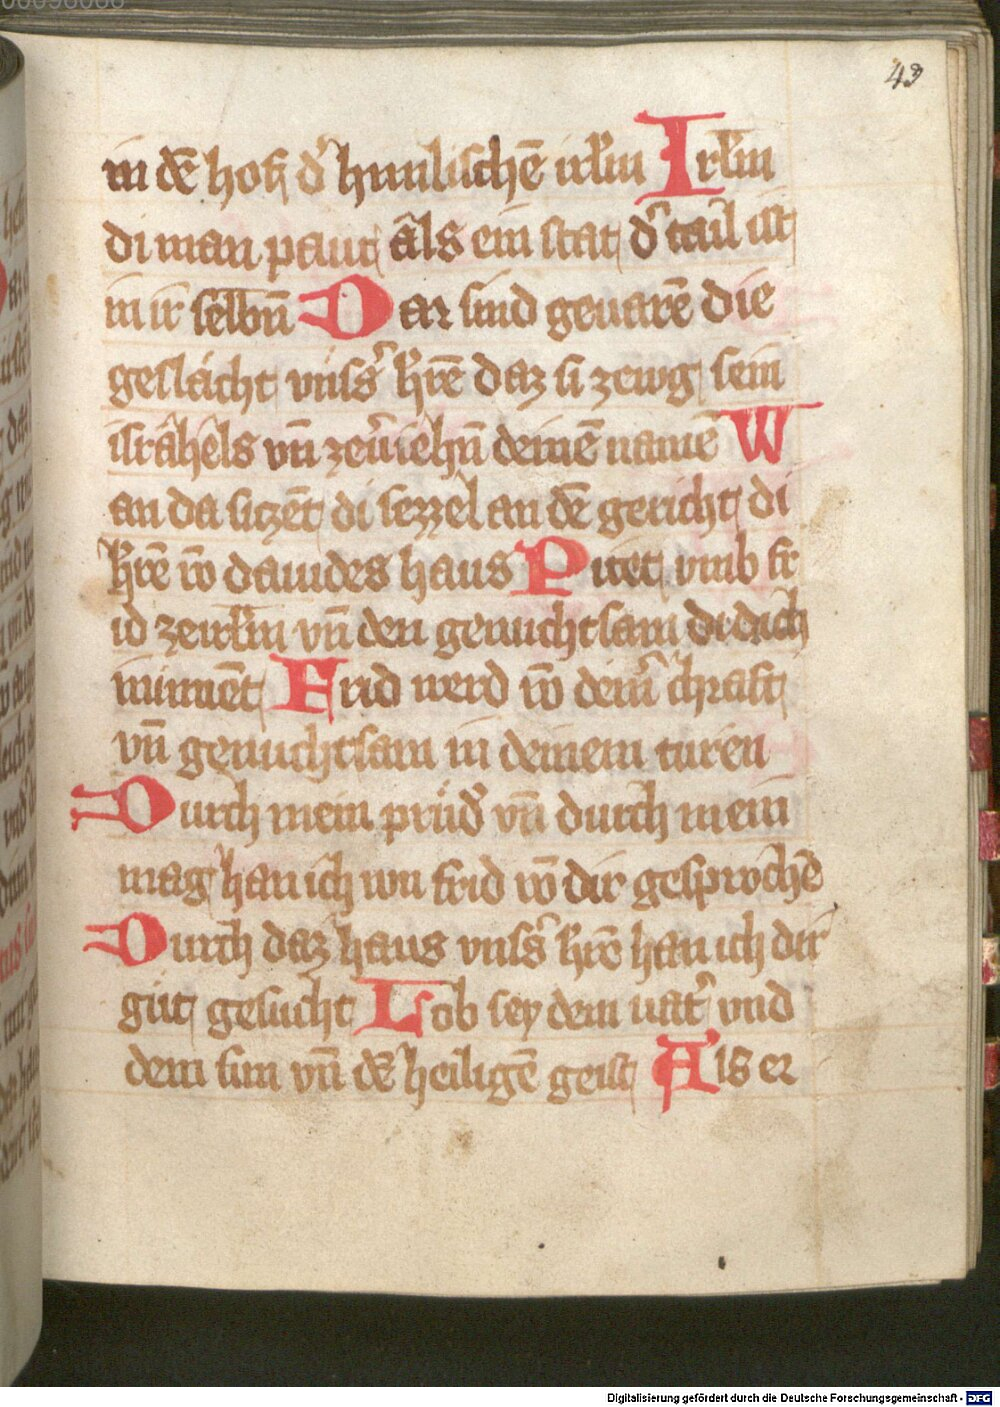 43
in dē hof d' himlischē irl̄m Irl̄m
di man paut als ein stat d' tail ist
in ir selbn̄ Dar sind geuarē die
geslächt vnss' h'rē daz si zewg sein
isrâhels vn̄ zeu'iehn̄ deinē namē W
an da siczēt di sezzel an dē gericht di
h'rē vō dauides haus Pitet vmb fr
id zeirl̄m vn̄ den genuchtsam di dich
minnēt Frid werd vō dein' chraft
vn̄ genuchtsam in deinem türen
Durch mein prüd' vn̄ durch mein
mag han ich von frid vō dir gesprochē
Durch daz haus vnss' h'rē han ich dir
güt gesucht Lob sey dem uat' vnd
dem sun vn̄ dē heiligē geist Als er
Digitalisierung gefördert durch die Deutsche Forschungsgemeinschaft - DFG